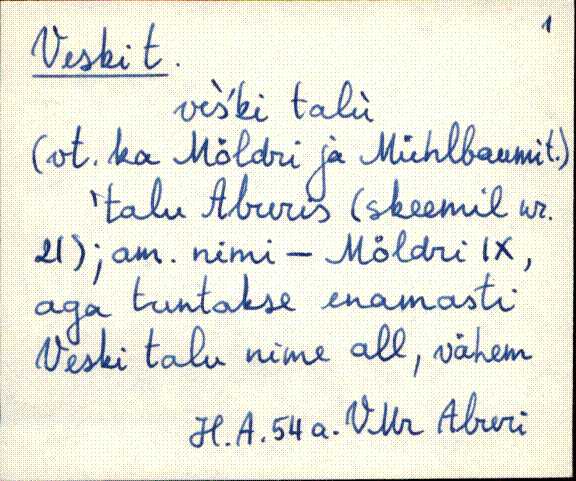 1
Veski t.
vèśki talù
(vt. ka Möldri ja Mühlbaumi t.)
'talu Abruris (skeemil nr.
21); am. nimi – Möldri IX,
aga tuntakse enamasti
Veski talu nime all, vähem
H.A. 54 a. VMr Abruri